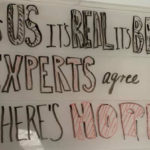 US ITS REN. ITS BE
EXPERTS agree
HERE'S HOPE